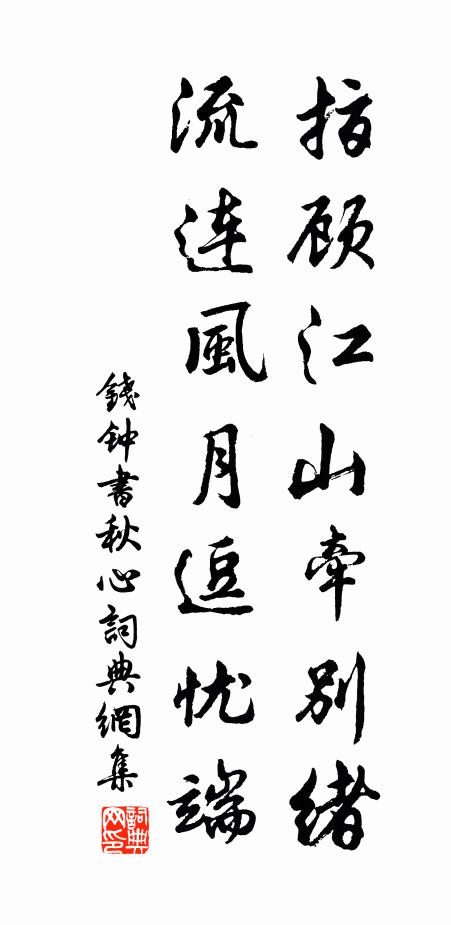 指顾江山牵别绪
流连風月逗忧端
錢钟書秋心詞典網集
詞典網印